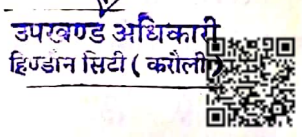 उपखण्ड अधिकारी
हिण्डौन सिटी ( करौली)